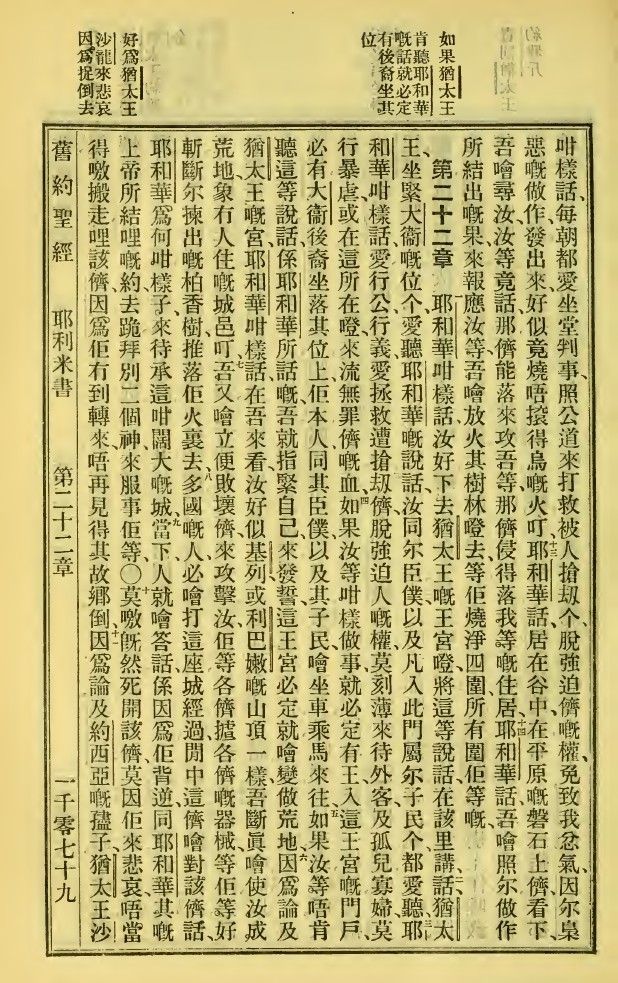 如果猶太王
肯聽耶和華
嘅話就必定
有後裔坐其
位
好爲猶太王
沙龍來悲哀
因爲捉倒去
咁樣話、每朝都愛坐堂判事、照公道來打救被人搶刼个、脫強迫儕嘅權、免致我忿氣、因尔梟
惡嘅做作發出來、好似竟燒唔㨪得烏嘅火叮、十三耶和華話、居在谷中、在平原嘅磐石上儕、看下、
吾噲尋汝、汝等竟話、那儕能落來攻吾等、那儕侵得落我等嘅住居、十四耶和華話、吾噲照尔做作
所結出嘅果、來報應汝等、吾噲放火其樹林噔去、等佢燒淨四圍所有圍佢等嘅、
第二十二章 一耶和華咁樣話、汝好下去猶太王嘅王宮噔、將這等說話、在該里講話、二猶太
王、坐緊大衞嘅位个、愛聽耶和華嘅說話、汝同尔臣僕、以及凡入此門屬尔子民个、都愛聽、三耶
和華咁樣話、愛行公行義、愛拯救遭搶刼儕、脫強迫人嘅權、莫刻薄來待外客及孤兒寡婦、莫
行暴虐、或在這所在噔來流無罪儕嘅血、四如果汝等咁樣做事、就必定有王入這王宮嘅門戶、
必有大衞後裔坐落其位上、佢本人同其臣僕、以及其子民、噲坐車乘馬來往、五如果汝等唔肯
聽這等說話、係耶和華所話嘅、吾就指緊自己來發誓、這王宮必定就噲變做荒地、六因爲論及
猶太王嘅宮、耶和華咁樣話、在吾來看、汝好似基列、或利巴嫩嘅山頂一樣、吾斷眞噲使汝成
荒地、象冇人住嘅城邑叮、七吾又噲立便敗壞儕、來攻擊汝、佢等各儕攄各儕嘅器械、等佢等好
斬斷尔揀出嘅柏香樹、推落佢火裏去、八多國嘅人必噲打這座城經過、閒中這儕噲對該儕話、
耶和華爲何咁樣子來待承這咁闊大嘅城、九當下人就噲答話、係因爲佢背逆同耶和華其嘅
上帝所結哩嘅約、去跪拜別二個神、來服事佢等、〇十莫噭旣然死開該儕、莫因佢來悲哀、唔當
得噭搬走哩該儕、因爲佢冇到轉來、唔再見得其故鄕倒、十一因爲論及約西亞嘅孻子、猶太王沙
舊約聖經 耶利米書 第二十二章 一千零七十九